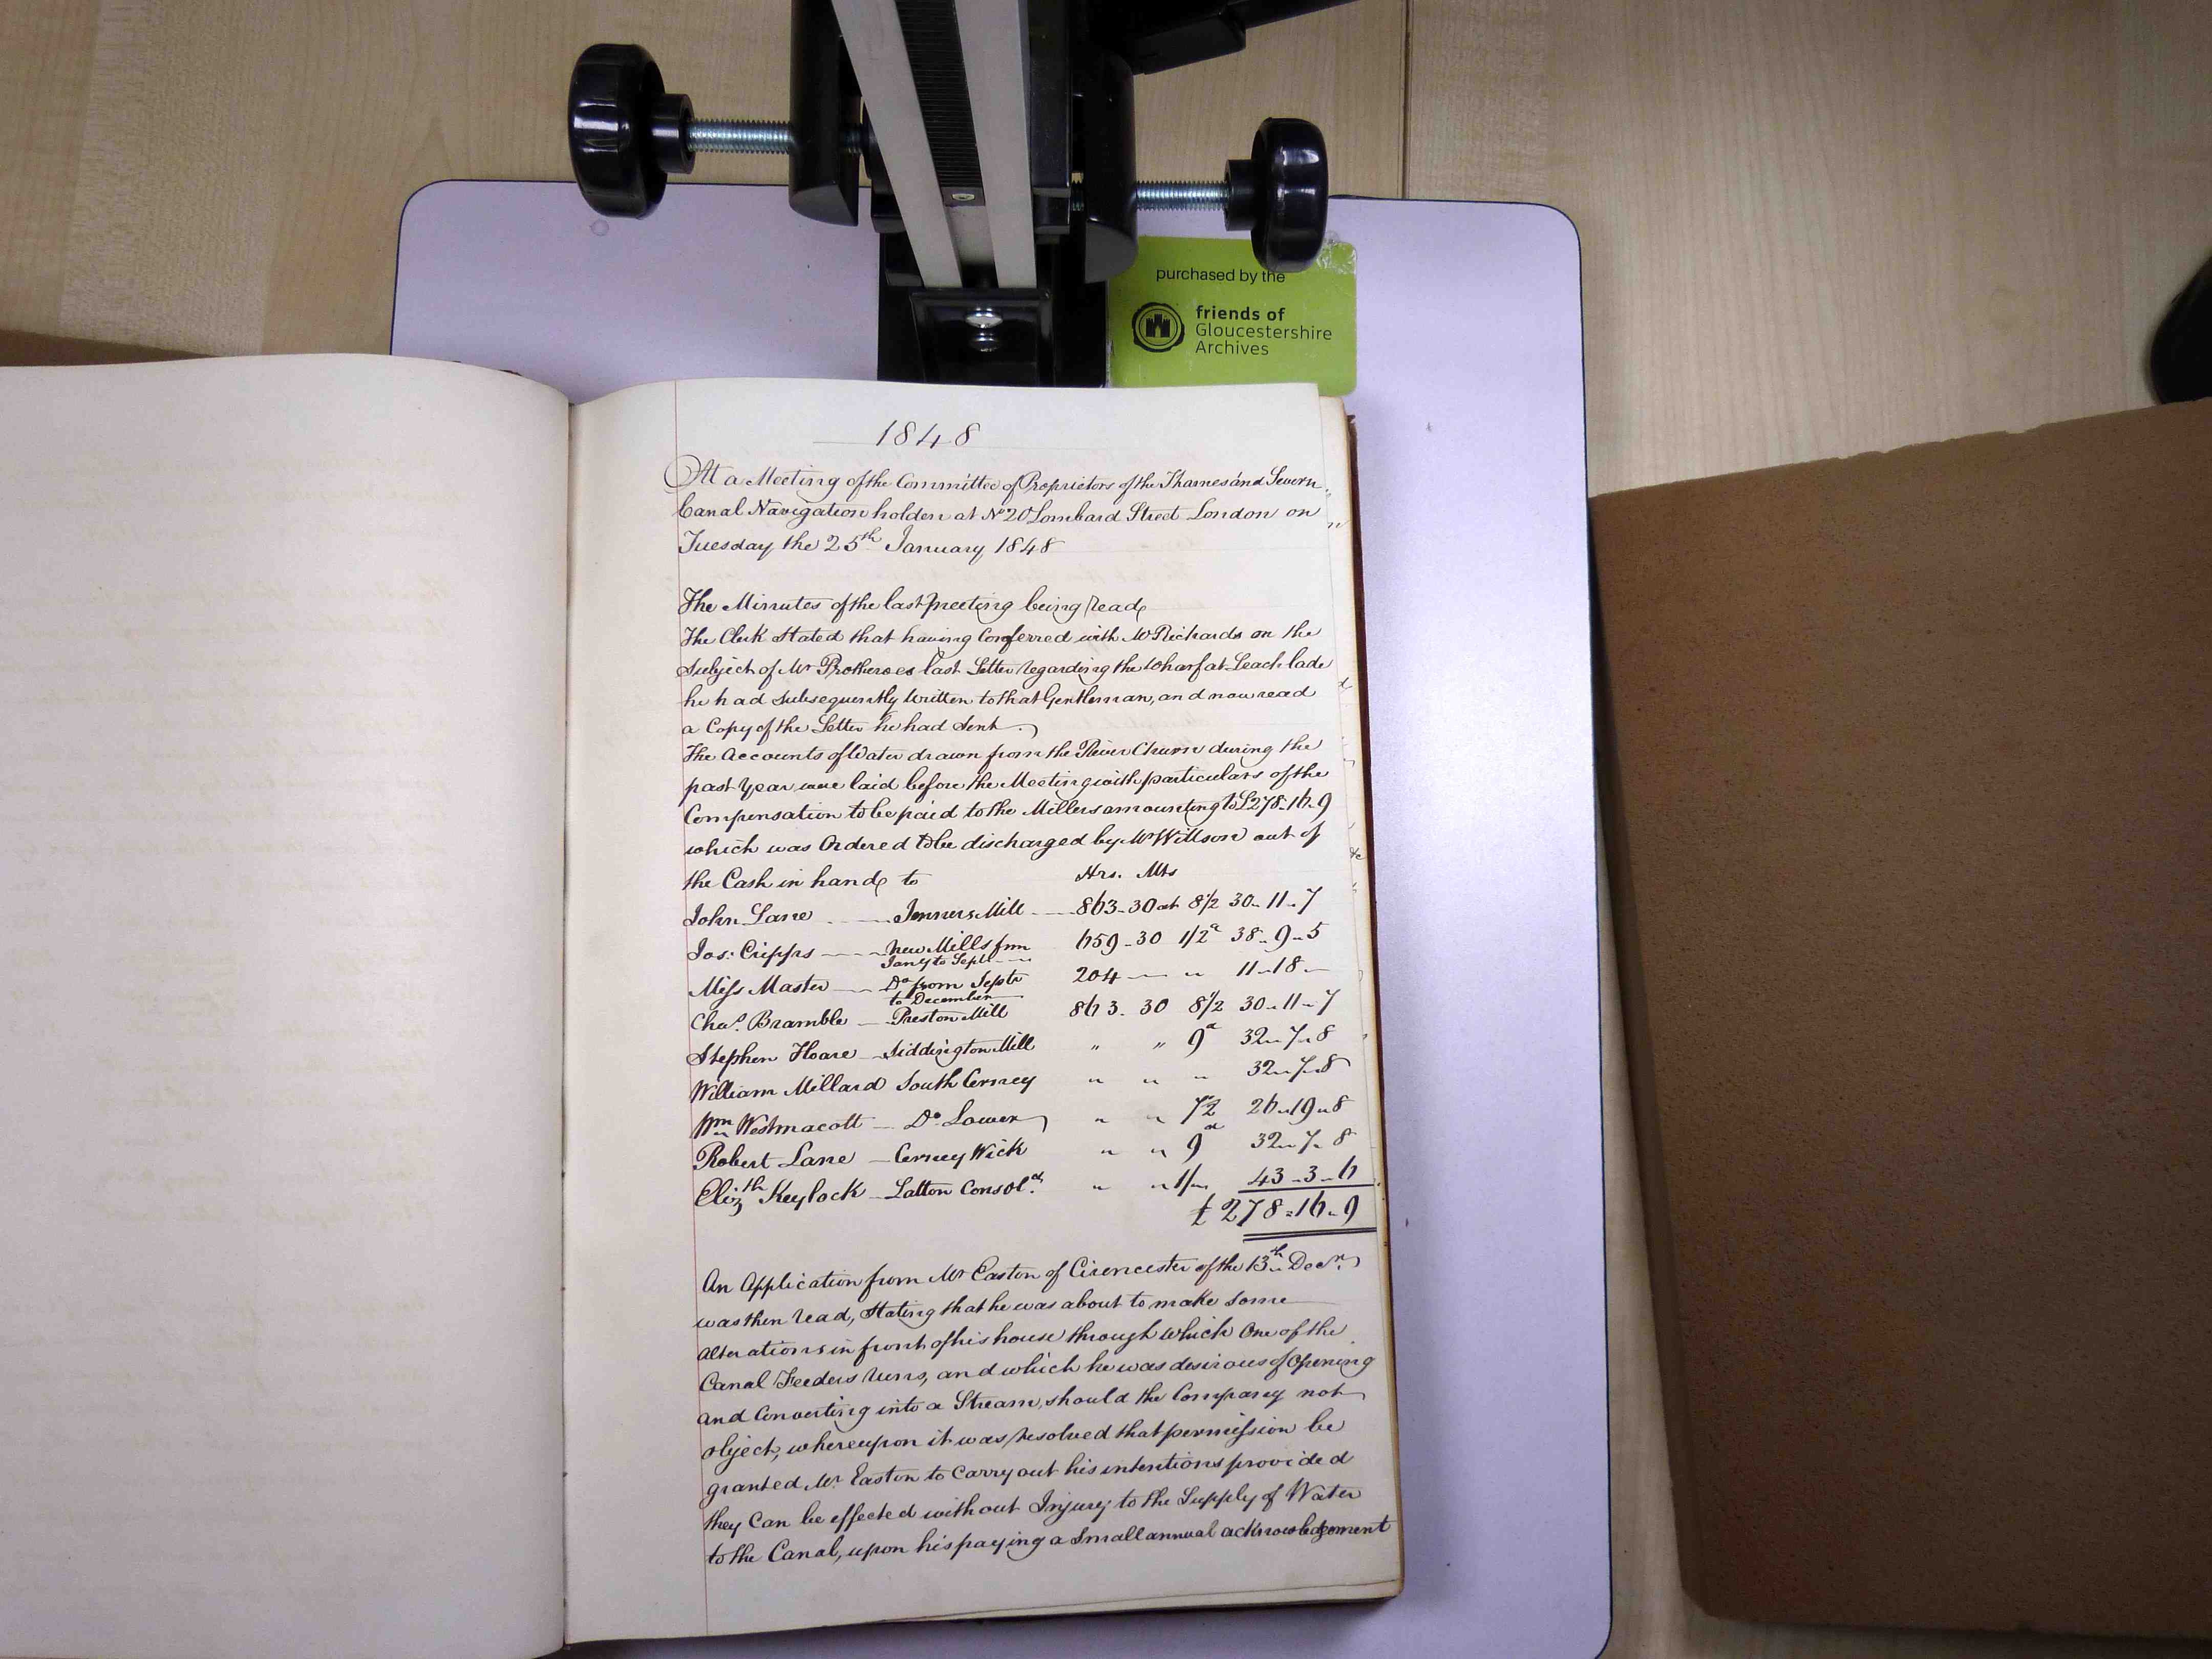 purchased by the
friends of
Gloucestershire
Archives
1848
At a Meeting of the Committee of Proprietors of the Thames and Severn
Canal Navigation holden at No 20 Lombard Street London on
Tuesday the 25th January 1848
The Minutes of the last meeting being read
The Clerk Stated that having Conferred with Mr Richards on the
Subject of Mr Protheroes last Letter regarding the Wharf at Leachlade
he had subsequently written to that Gentleman, and now read
a Copy of the Letter he had sent.
The Accounts of Water drawn from the River Churn during the
past Year were laid before the Meeting with particulars of the
Compensation to be paid to the Millers amounting to £278-16-9
which was Ordered to be discharged by Mr Willson out of
the Cash in hand to Hrs. Mts
John Lane Jenners Mill 863-30 at 8½ 30-11-7
Jos: Cripps New Mills from Jany to Sept 659-30 1/2d 38-9-5
Miss Master Do from Septr to December 204 — " 11-18-
Chas. Bramble Preston Mill 863. 30 8½ 30-11-7
Stephen Hoare Siddington Mill " " 9d 32-7-8
William Millard South Cerney " " " 32-7-8
Wm Westmacott Do Lower " " 7½ 26-19-8
Robert Lane Cerney Wick " " 9d 32-7-8
Elizth Keylock Latton Consold. " " 1/- 43-3-6
£278-16-9
An Application from Mr Easton of Cirencester of the 13th Decr.
was then read, Stating that he was about to make some
alterations in front of his house through which One of the
Canal Feeders runs, and which he was desirous of Opening
and Converting into a Stream, should the Company not
object, whereupon it was resolved that permission be
granted Mr. Easton to Carry out his intentions provided
they Can be effected without Injury to the Supply of Water
to the Canal, upon his paying a Small annual acknowledgement